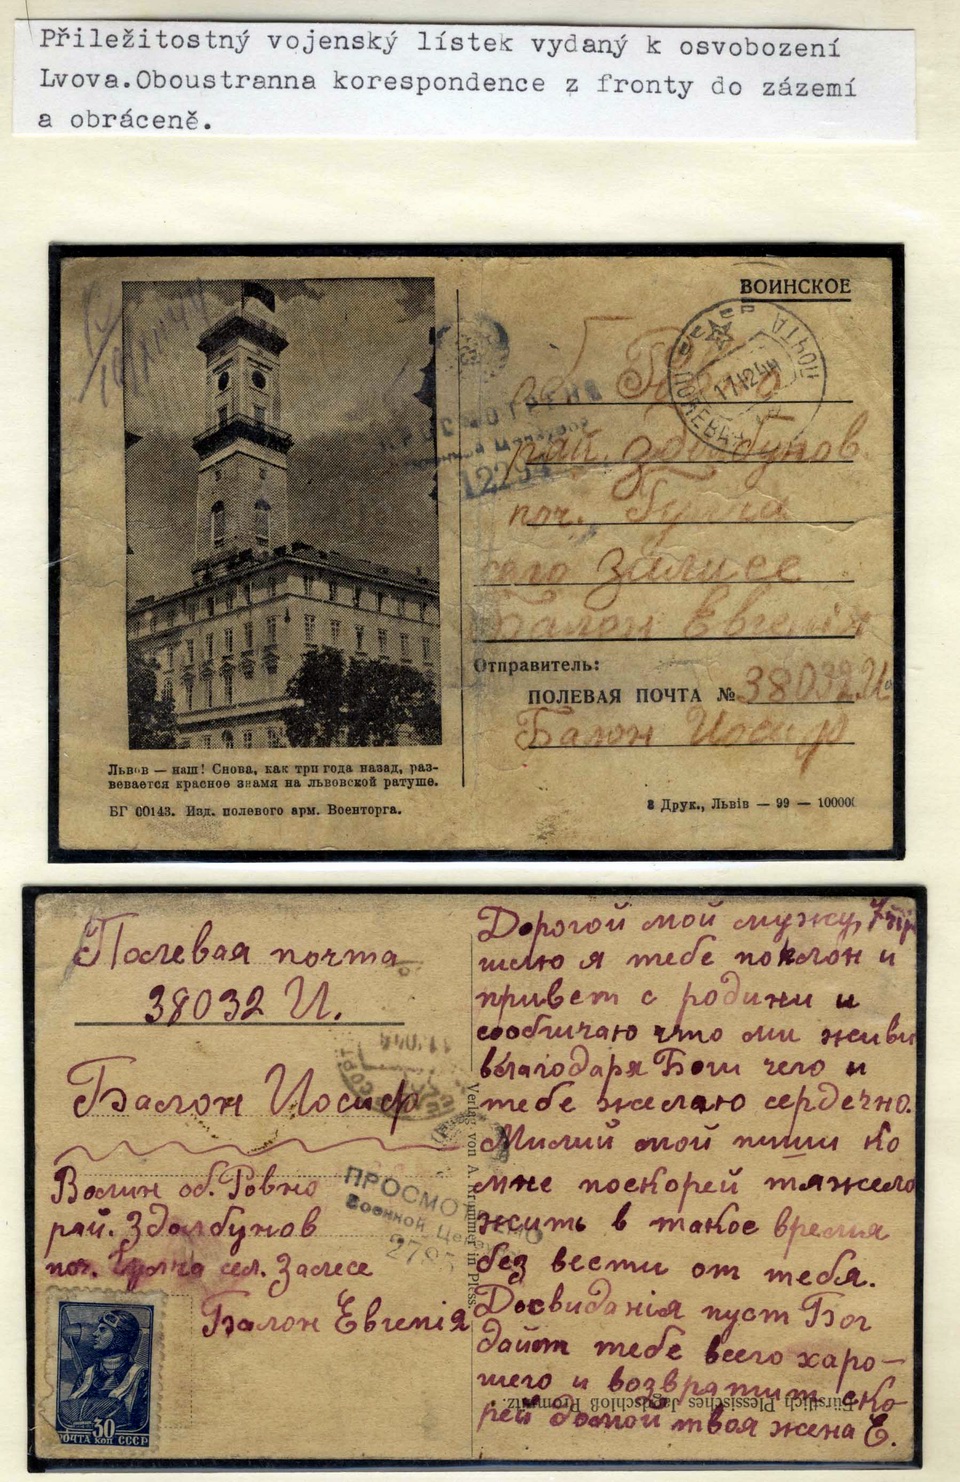 Přiležitostný vojenský lístek vydaný k osvobození
Lvova.Oboustranna korespondence z fronty do zázemí
a obráceně.
ВОИНСКОЕ
об. Ровно
рай. Здолбунов
поч. Гульча
село Залисе
Балон Евгенія
Отправитель:
ПОЛЕВАЯ ПОЧТА № 38032 И
Балон Иосиф
СССР
ПОЛЕВАЯ ПОЧТА
17 12 44
ПРОСМОТРЕНО
Военной Цензурой
12294
Львов — наш! Снова, как три года назад, раз-
вевается красное знамя на львовской ратуше.
БГ 00143. Изд. полевого арм. Военторга.
8 Друк., Львів — 99 — 100000
Полевая почта
38032 И.
Балон Иосиф
Волин об. Ровно
рай. Здолбунов
поч. Гульча сел. Залесе
Балон Евгенія
30
ПОЧТА КОП СССР
ПРОСМОТРЕНО
Военной Цензурой
Verlag von A. Krummer in Pless.
Fürstlich Plessisches Jagdschloß Promnitz.
Дорогой мой мужу,
шлю я тебе поклон и
привет с родини и
сообшчаю что ми живи
благодаря Бош чего и
тебе желаю сердечно.
Милий мой пиши ко
мне поскорей тяжело
жить в такое время
без вести от тебя.
Досвиданія пуст Бог
дайот тебе всего харо-
шего и возвратит ско-
рей домой твоя жена Е.